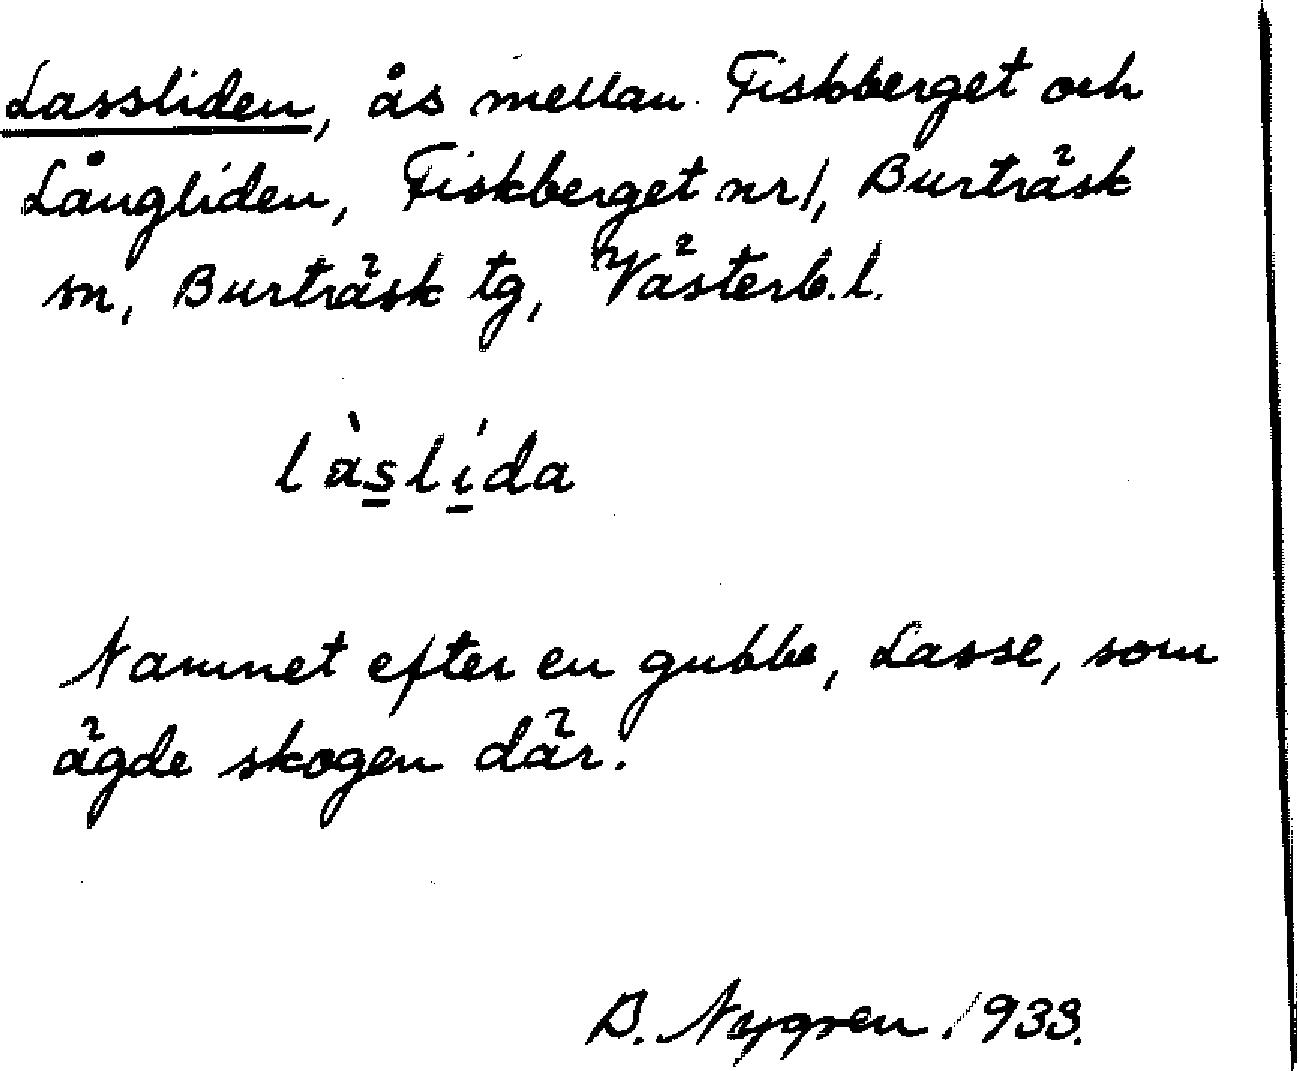 Lassliden, ås mellan Fiskberget och
Långliden, Fiskberget nr 1, Burträsk
sn, Burträsk tg, Västerb.l.
làslída
Namnet efter en gubbe, Lasse, som
ägde skogen där.
B. Nygren 1933.